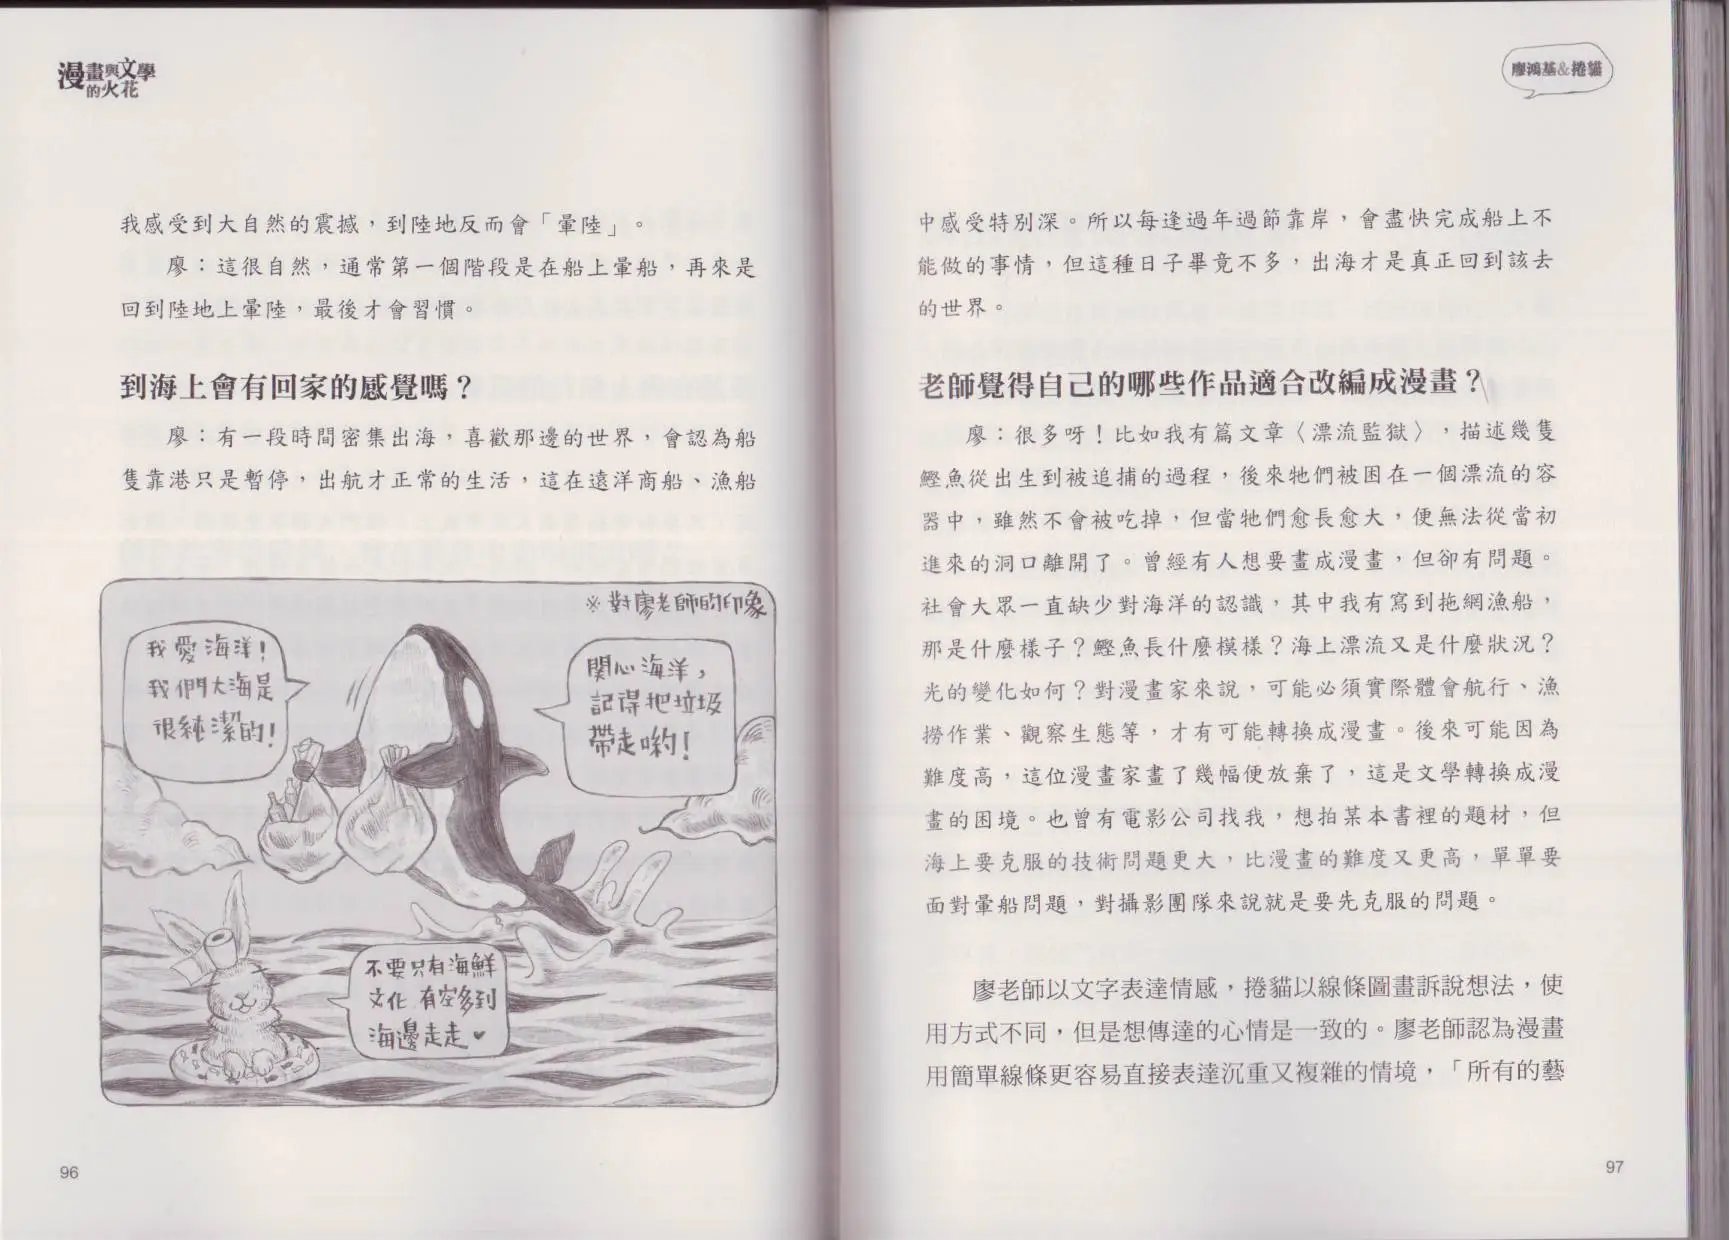 漫畫與文學
的火花
我感受到大自然的震撼，到陸地反而會「暈陸」。
廖：這很自然，通常第一個階段是在船上暈船，再來是
回到陸地上暈陸，最後才會習慣。
到海上會有回家的感覺嗎？
廖：有一段時間密集出海，喜歡那邊的世界，會認為船
隻靠港只是暫停，出航才正常的生活，這在遠洋商船、漁船
※對廖老師的印象
我愛海洋！
我們大海是
很純潔的！
関心海洋，
記得把垃圾
帶走喲！
不要只有海鮮
文化 有空多到
海邊走走♥
96
廖鴻基&捲貓
中感受特別深。所以每逢過年過節靠岸，會盡快完成船上不
能做的事情，但這種日子畢竟不多，出海才是真正回到該去
的世界。
老師覺得自己的哪些作品適合改編成漫畫？
廖：很多呀！比如我有篇文章〈漂流監獄〉，描述幾隻
鰹魚從出生到被追捕的過程，後來牠們被困在一個漂流的容
器中，雖然不會被吃掉，但當牠們愈長愈大，便無法從當初
進來的洞口離開了。曾經有人想要畫成漫畫，但卻有問題。
社會大眾一直缺少對海洋的認識，其中我有寫到拖網漁船，
那是什麼樣子？鰹魚長什麼模樣？海上漂流又是什麼狀況？
光的變化如何？對漫畫家來說，可能必須實際體會航行、漁
撈作業、觀察生態等，才有可能轉換成漫畫。後來可能因為
難度高，這位漫畫家畫了幾幅便放棄了，這是文學轉換成漫
畫的困境。也曾有電影公司找我，想拍某本書裡的題材，但
海上要克服的技術問題更大，比漫畫的難度又更高，單單要
面對暈船問題，對攝影團隊來說就是要先克服的問題。
廖老師以文字表達情感，捲貓以線條圖畫訴說想法，使
用方式不同，但是想傳達的心情是一致的。廖老師認為漫畫
用簡單線條更容易直接表達沉重又複雜的情境，「所有的藝
97